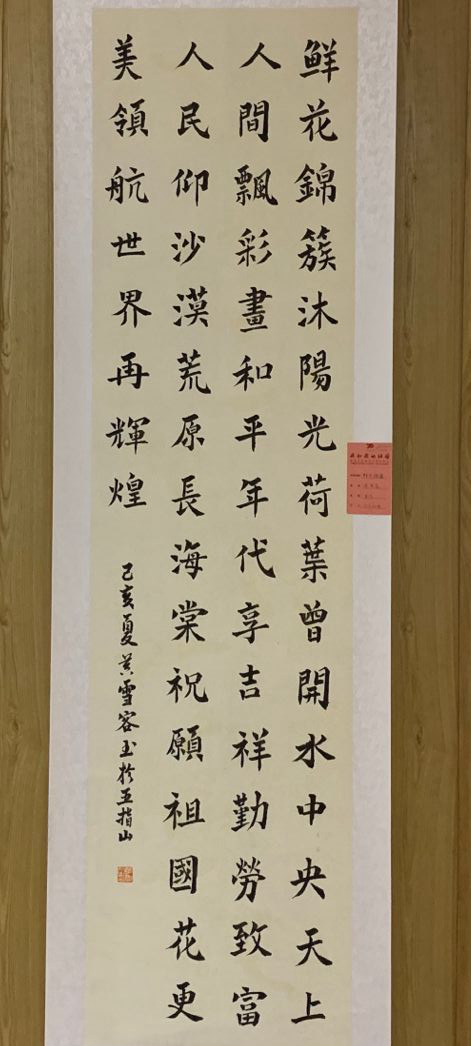 鮮花錦簇沐陽光荷葉曾開水中央天上
人間飄彩畫和平年代享吉祥勤勞致富
人民仰沙漠荒原長海棠祝願祖國花更
美領航世界再輝煌
己亥夏黃雪容玉於五指山